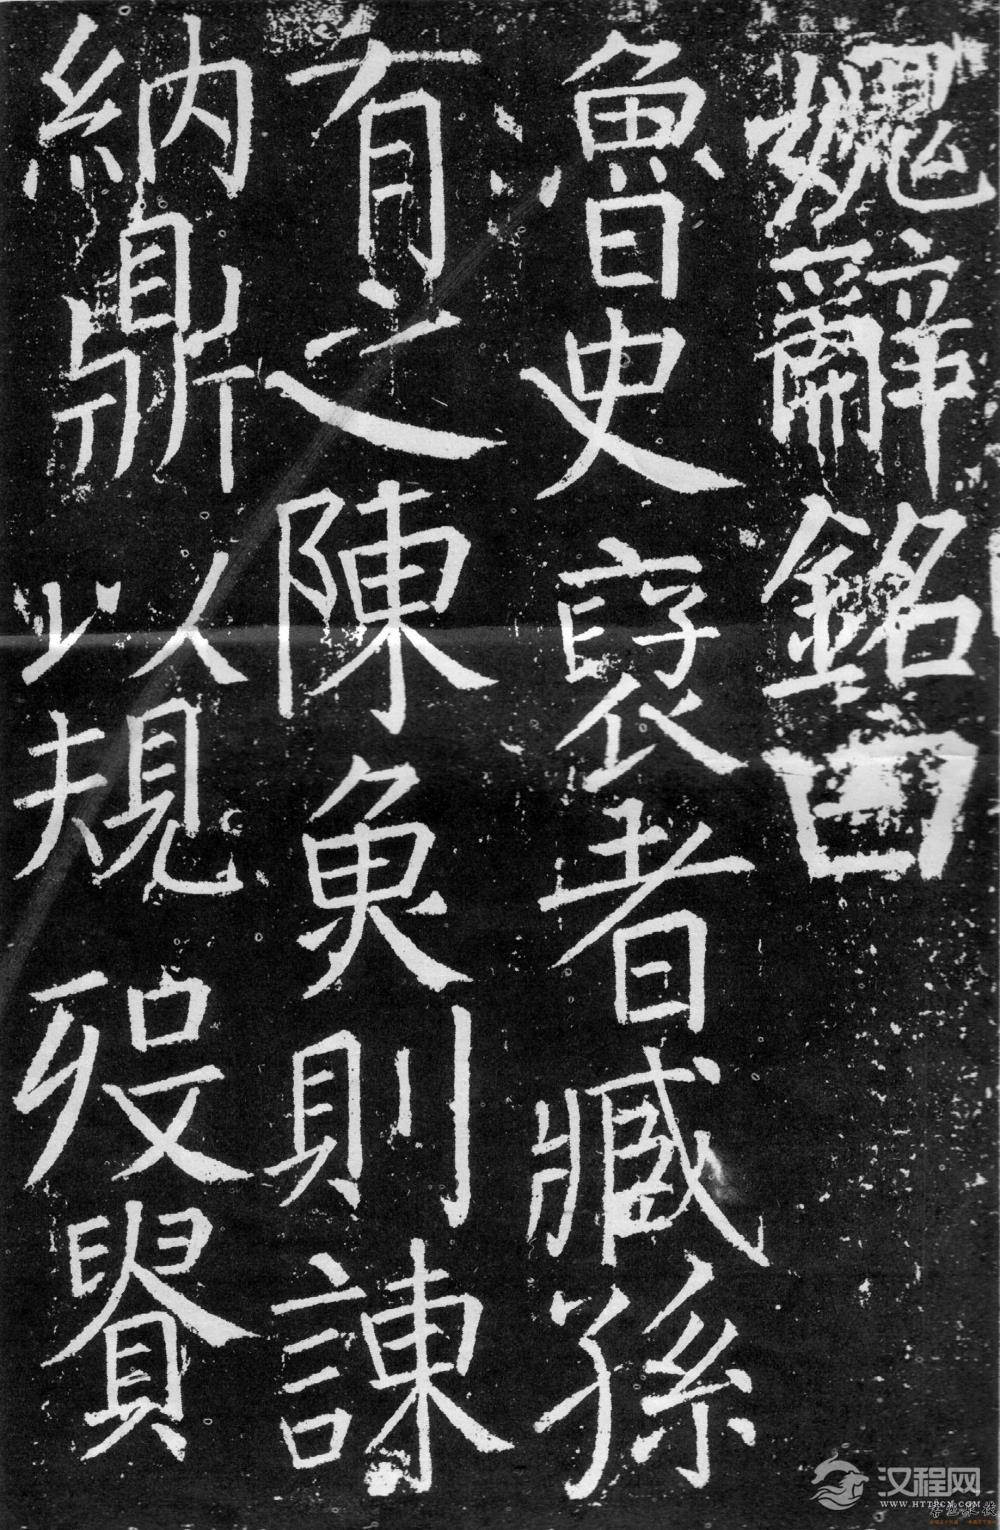 媿辭銘曰
魯史褒者臧孫
有之陳魚則諫
納鼎以規歿貴
汉程网
WWW.HTTPCN.COM